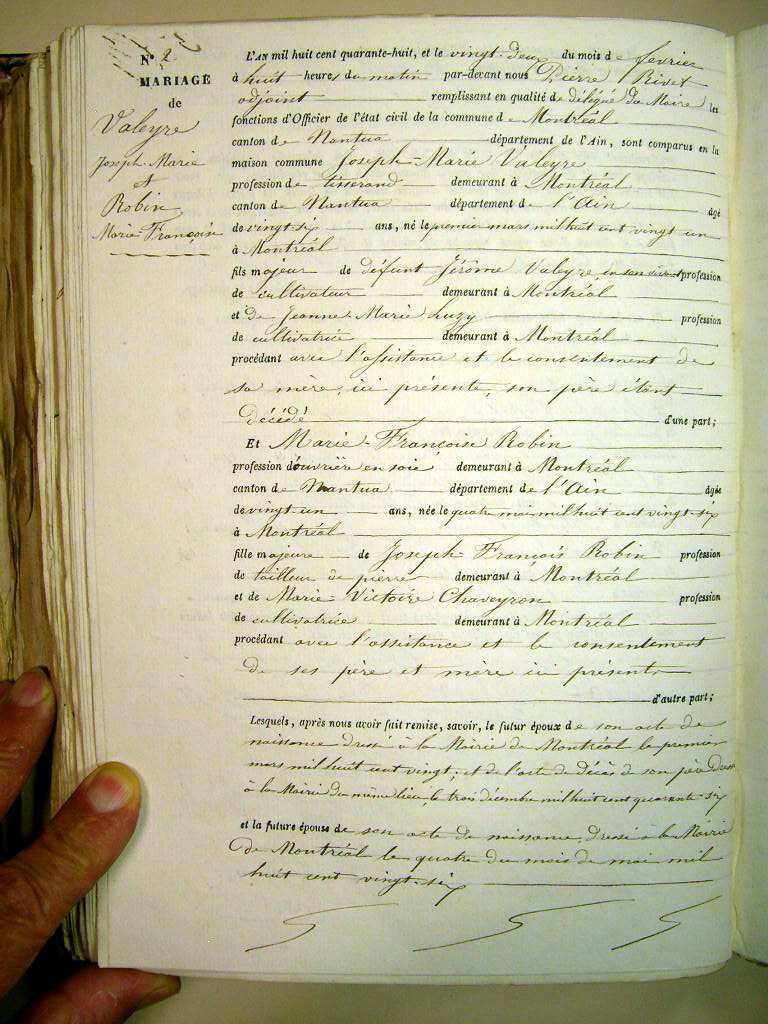 N° 2
MARIAGE
de
Valeyre
Joseph-Marie
et
Robin
Marie-Françoise
L'AN mil huit cent quarante-huit, et le vingt-deux du mois de fevrier
à huit heures du matin par-devant nous Pierre Rivet
adjoint remplissant en qualité de délégué du Maire les
fonctions d'Officier de l'état civil de la commune de Montréal
canton de Nantua département de l'Ain, sont comparus en la
maison commune Joseph-Marie Valeyre
profession de tisserand demeurant à Montréal
canton de Nantua département de l'Ain âgé
de vingt-six ans, né le premier mars mil huit cent vingt un
à Montréal
fils majeur de défunt Jérôme Valeyre, en son vivant profession
de cultivateur demeurant à Montréal
et de Jeanne-Marie Luzy profession
de cultivatrice demeurant à Montréal
procédant avec l'assistance et le consentement de
sa mère, ici présente, son père étant
décédé d'une part;
Et Marie-Françoise Robin
profession d'ouvrière en soie demeurant à Montréal
canton de Nantua département de l'Ain âgée
de vingt un ans, née le quatre mai mil huit cent vingt-six
à Montréal
fille majeure de Joseph-François Robin profession
de tailleur de pierre demeurant à Montréal
et de Marie-Victoire Chaveyron profession
de cultivatrice demeurant à Montréal
procédant avec l'assistance et le consentement
de ses père et mère ici présents
d'autre part;
Lesquels, après nous avoir fait remise, savoir, le futur époux de son acte de
naissance dressé à la Mairie de Montréal le premier
mars mil huit cent vingt; et de l'acte de décès de son père dressé
à la Mairie du même lieu, le trois décembre mil huit cent quarante-six
et la future épouse de son acte de naissance, dressé à la Mairie
de Montréal le quatre du mois de mai mil
huit cent vingt-six